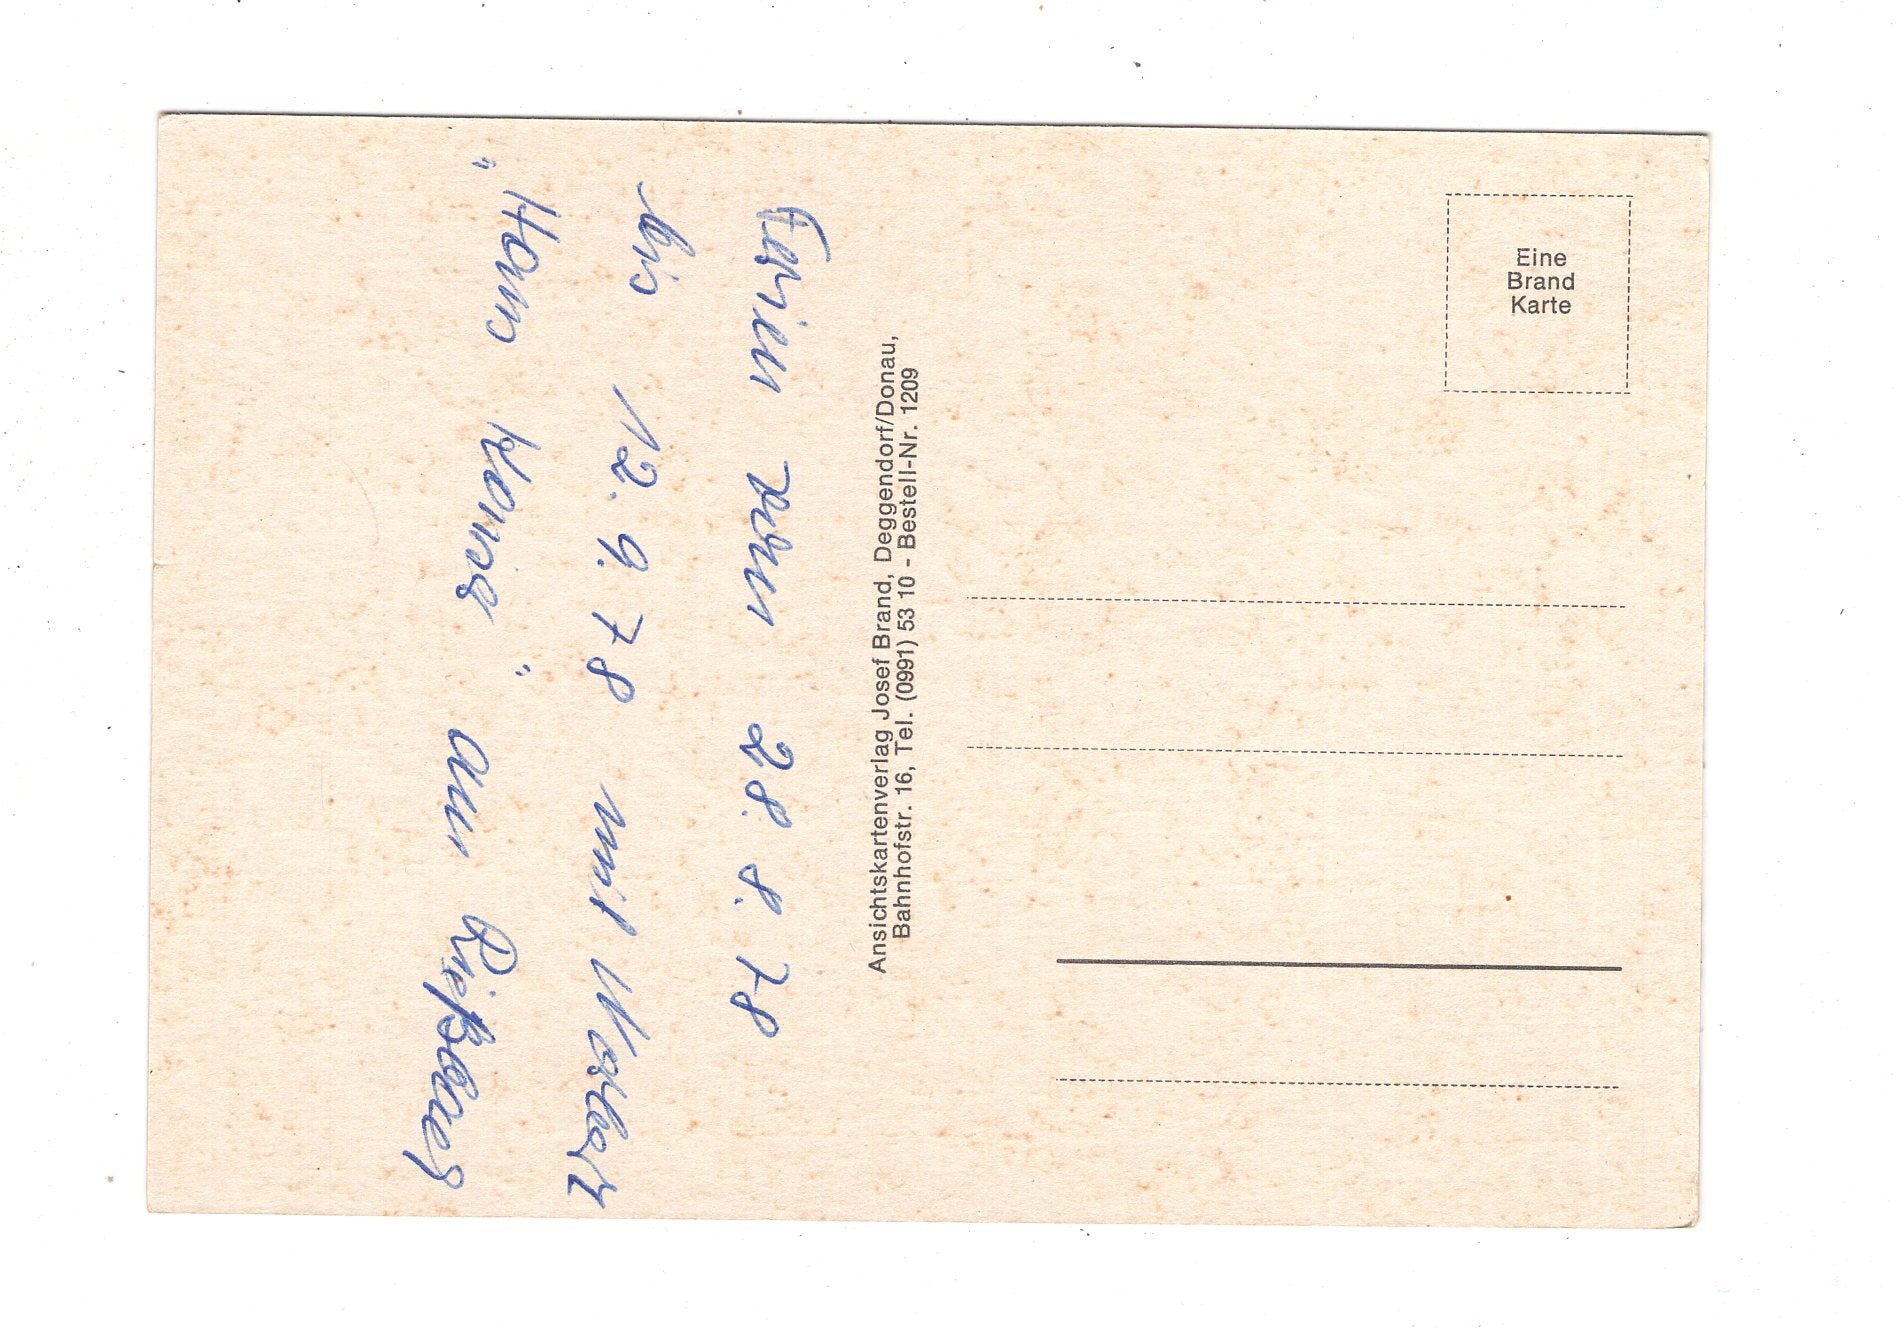 Ferien vom 28. 8. 78
bis 12. 9. 78 mit
"Haus" am
Ansichtskartenverlag Josef Brand, Deggendorf/Donau,
Bahnhofstr. 16, Tel. (0991) 53 10 - Bestell-Nr. 1209
Eine
Brand
Karte